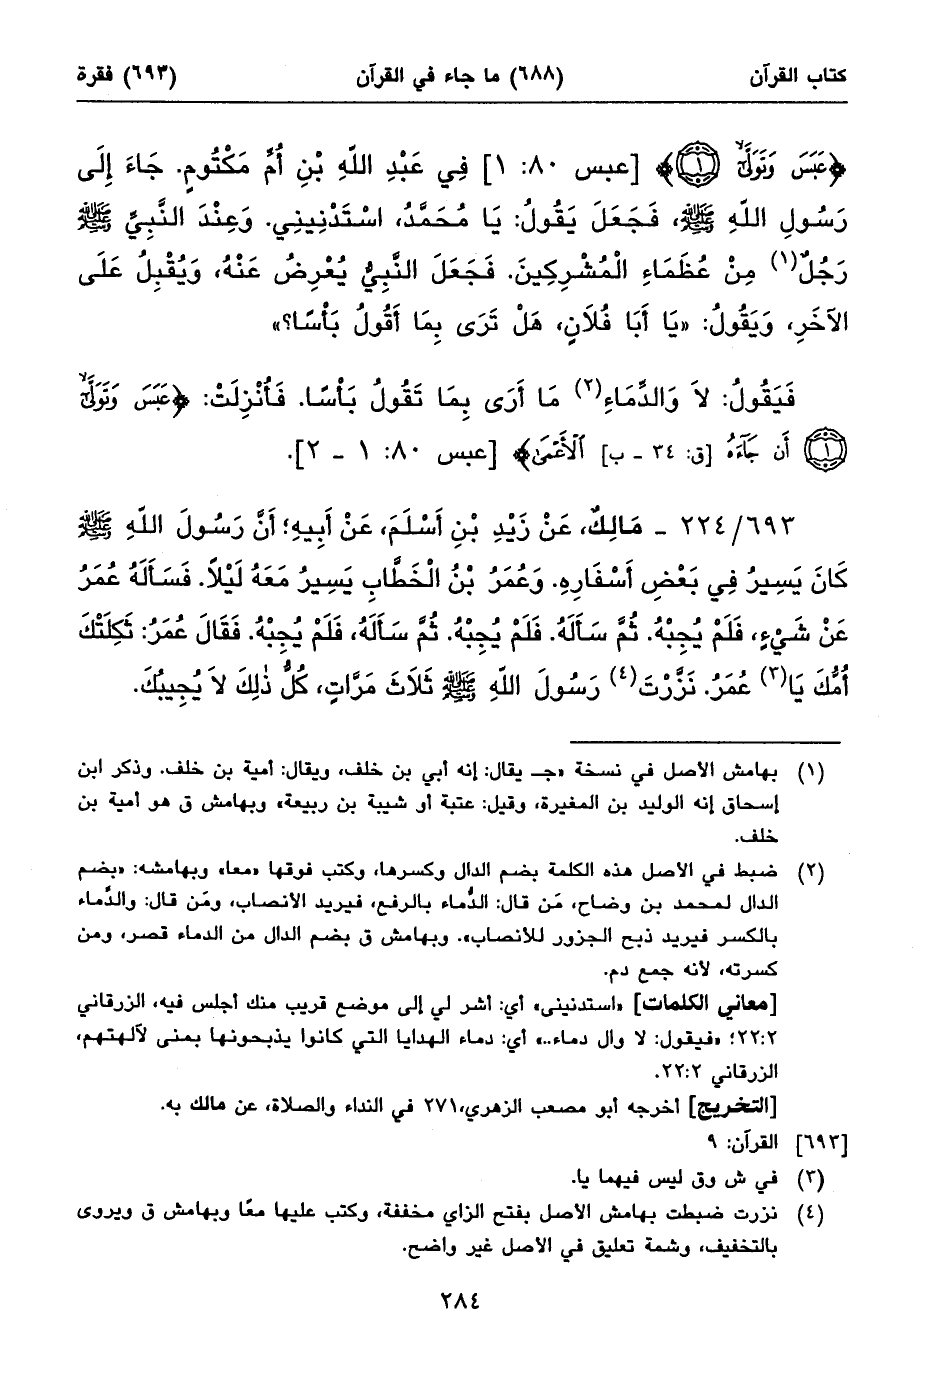 كتاب القرآن (٦٨٨) ما جاء في القرآن (٦٩٣) فقرة
﴿عَبَسَ وَتَوَلَّىٰٓ ۝١﴾ [عبس ٨٠: ١] فِي عَبْدِ اللَّهِ بْنِ أُمِّ مَكْتُومٍ. جَاءَ إِلَى
رَسُولِ اللَّهِ ﷺ، فَجَعَلَ يَقُولُ: يَا مُحَمَّدُ، اسْتَدْنِينِي. وَعِنْدَ النَّبِيِّ ﷺ
رَجُلٌ(١) مِنْ عُظَمَاءِ الْمُشْرِكِينَ. فَجَعَلَ النَّبِيُّ يُعْرِضُ عَنْهُ، وَيُقْبِلُ عَلَى
الآخَرِ، وَيَقُولُ: «يَا أَبَا فُلَانٍ، هَلْ تَرَى بِمَا أَقُولُ بَأْسًا؟»
فَيَقُولُ: لاَ وَالدُّمَاءِ(٢) مَا أَرَى بِمَا تَقُولُ بَأْسًا. فَأُنْزِلَتْ: ﴿عَبَسَ وَتَوَلَّىٰٓ
۝١ أَن جَآءَهُ [ق: ٣٤ - ب] ٱلْأَعْمَىٰ﴾ [عبس ٨٠: ١ - ٢].
٢٢٤/٦٩٣ - مَالِكٌ، عَنْ زَيْدِ بْنِ أَسْلَمَ، عَنْ أَبِيهِ؛ أَنَّ رَسُولَ اللَّهِ ﷺ
كَانَ يَسِيرُ فِي بَعْضِ أَسْفَارِهِ. وَعُمَرُ بْنُ الْخَطَّابِ يَسِيرُ مَعَهُ لَيْلاً. فَسَأَلَهُ عُمَرُ
عَنْ شَيْءٍ، فَلَمْ يُجِبْهُ. ثُمَّ سَأَلَهُ. فَلَمْ يُجِبْهُ. ثُمَّ سَأَلَهُ، فَلَمْ يُجِبْهُ. فَقَالَ عُمَرُ: ثَكِلَتْكَ
أُمُّكَ يَا(٣) عُمَرُ. نَزَّرْتَ(٤) رَسُولَ اللَّهِ ﷺ ثَلَاثَ مَرَّاتٍ، كُلُّ ذٰلِكَ لاَ يُجِيبُكَ.
(١) بهامش الأصل في نسخة «جـ يقال: إنه أبي بن خلف، ويقال: أمية بن خلف. وذكر ابن
إسحاق إنه الوليد بن المغيرة، وقيل: عتبة أو شيبة بن ربيعة» وبهامش ق هو أمية بن
خلف.
(٢) ضبط في الأصل هذه الكلمة بضم الدال وكسرها، وكتب فوقها «معا» وبهامشه: «بضم
الدال لمحمد بن وضاح، مَن قال: الدُّماء بالرفع، فيريد الأنصاب، ومَن قال: والدَّماء
بالكسر فيريد ذبح الجزور للأنصاب». وبهامش ق بضم الدال من الدماء قصر، ومن
كسرته، لأنه جمع دم.
[معاني الكلمات] «استدنيني» أي: أشر لي إلى موضع قريب منك أجلس فيه، الزرقاني
٢٢:٢؛ «فيقول: لا وال دماء..» أي: دماء الهدايا التي كانوا يذبحونها بمنى لآلهتهم،
الزرقاني ٢٢:٢.
[التخريج] أخرجه أبو مصعب الزهري،٢٧١ في النداء والصلاة، عن مالك به.
[٦٩٣] القرآن: ٩
(٣) في ش وق ليس فيهما يا.
(٤) نزرت ضبطت بهامش الأصل بفتح الزاي مخففة، وكتب عليها معًا وبهامش ق ويروى
بالتخفيف، وشمة تعليق في الأصل غير واضح.
٢٨٤